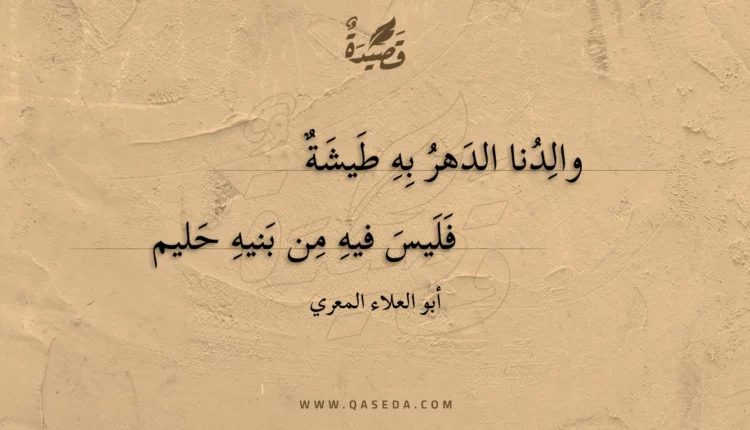 قَصِيدَةٌ
والِدُنا الدَهرُ بِهِ طَيشَةٌ
فَلَيسَ فيهِ مِن بَنيهِ حَليم
أبو العلاء المعري
WWW.QASEDA.COM